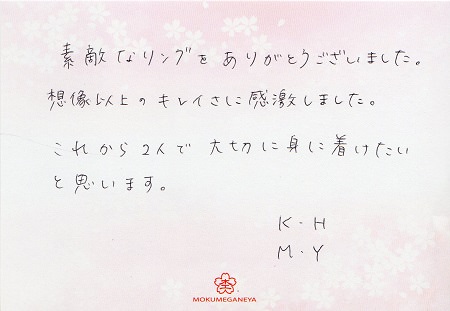 素敵なリングをありがとうございました。
想像以上のキレイさに感激しました。
これから2人で大切に身に着けたい
と思います。
K・H
M・Y
MOKUMEGANEYA